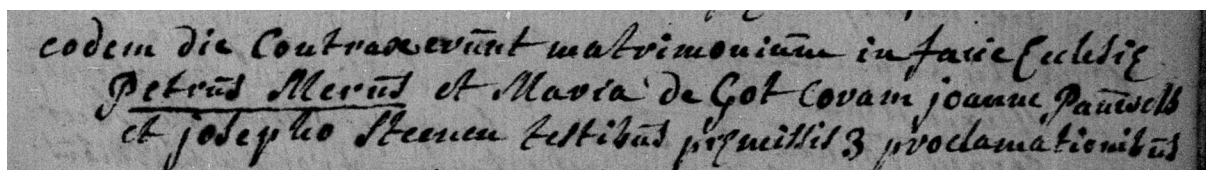 eodem die Contraxerunt matrimonium in facie Ecclesię
Petrus Merus et Maria de Got coram joanne Pauwels
et josepho Steenen testibus pręmissis 3 proclamationibus